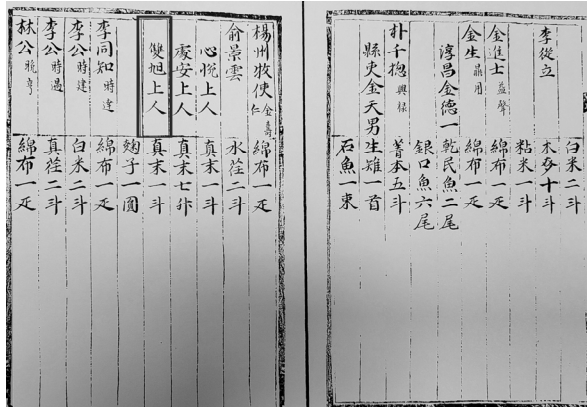 白米二斗
李從立 木麥十斗
粘米一斗
金進士 益聲 綿布一疋
金生 鼎用 綿布一疋
淳昌金德一 乾民魚二尾
銀口魚六尾
朴千摠 興祿 本五斗
縣吏金天男 生雉一首
石魚一束
楊州牧使 金壽仁 綿布一疋
俞景雲 水荏二斗
心悅上人 真末一斗
處安上人 真末七升
雙旭上人 真末一斗
麴子一圓
李同知 時達 綿布一疋
李公 時建 白米二斗
李公 時遇 真荏二斗
林公 晩亨 綿布一疋